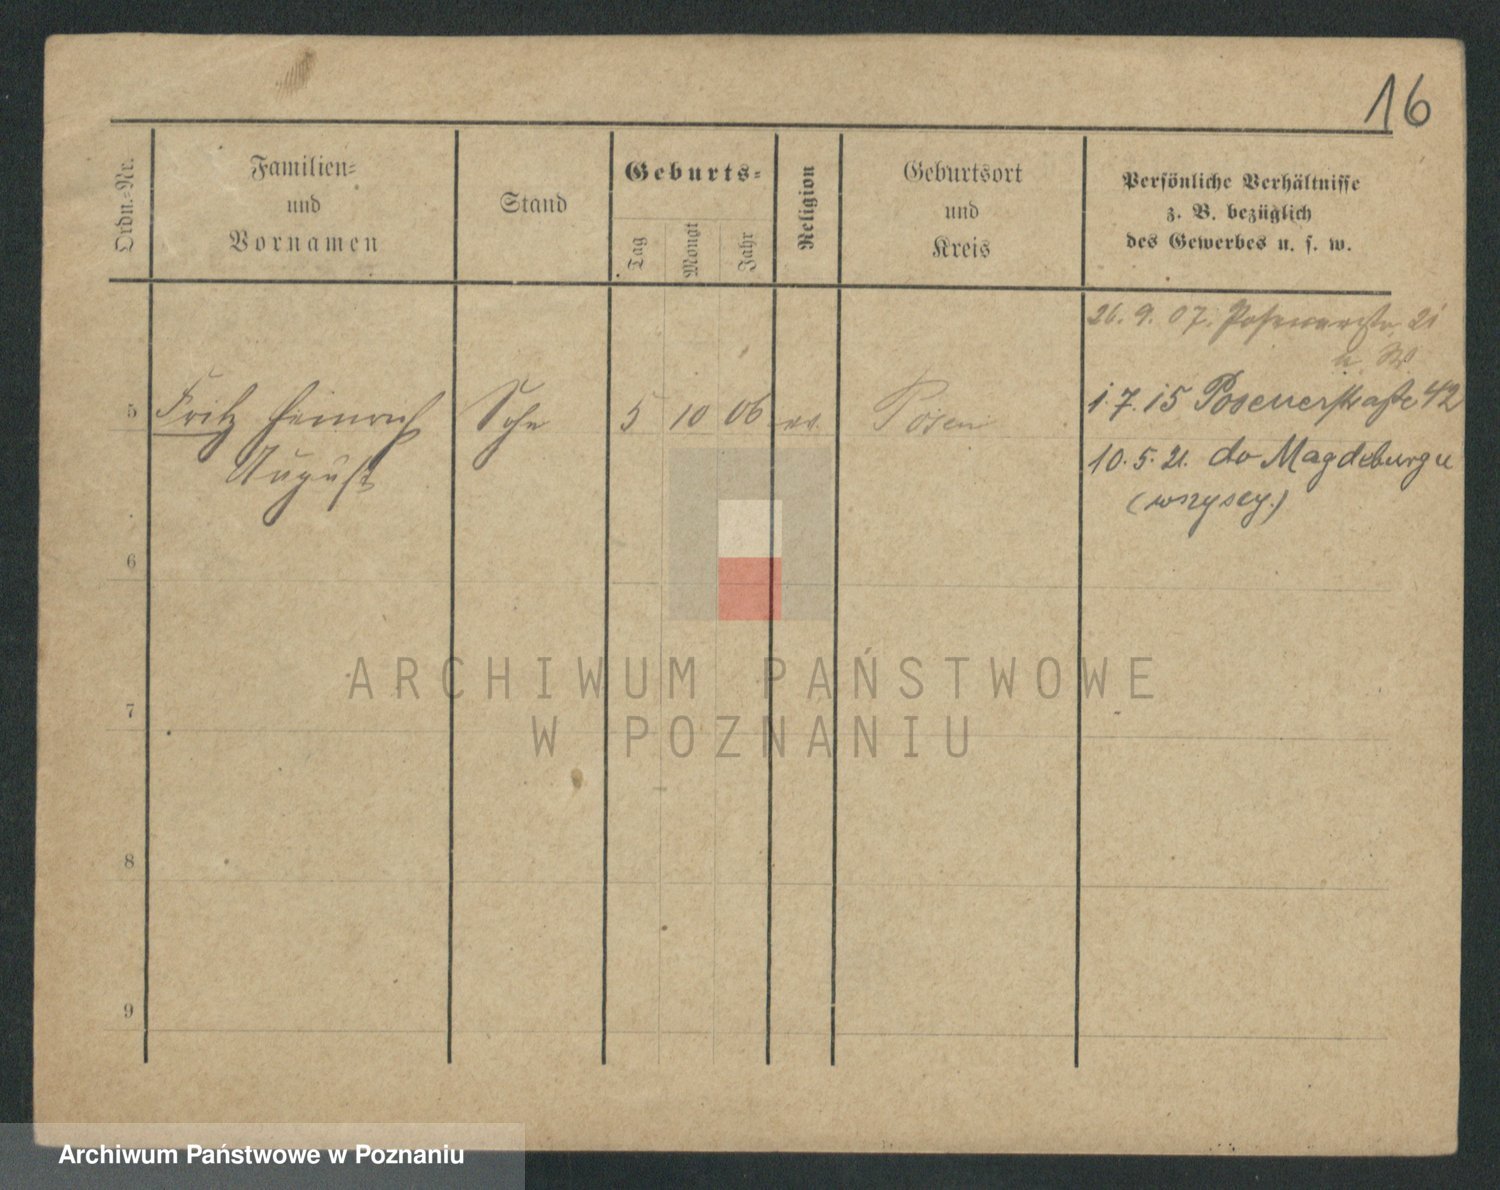 16
Ordn.-Nr.
Familien-
und
Vornamen
Stand
Geburts-
Tag
Monat
Jahr
Religion
Geburtsort
und
Kreis
Persönliche Verhältnisse
z. B. bezüglich
des Gewerbes u. s. w.
26. 9. 07. Posenerstr. 21
5 Fritz Heinrich Sohn 5 10 06 ev. Posen 1. 7. 15 Posenerstraße 42
August 10. 5. 21. do Magdeburgu
(wszyscy.)
6
7
8
9
ARCHIWUM PAŃSTWOWE
W POZNANIU
Archiwum Państwowe w Poznaniu